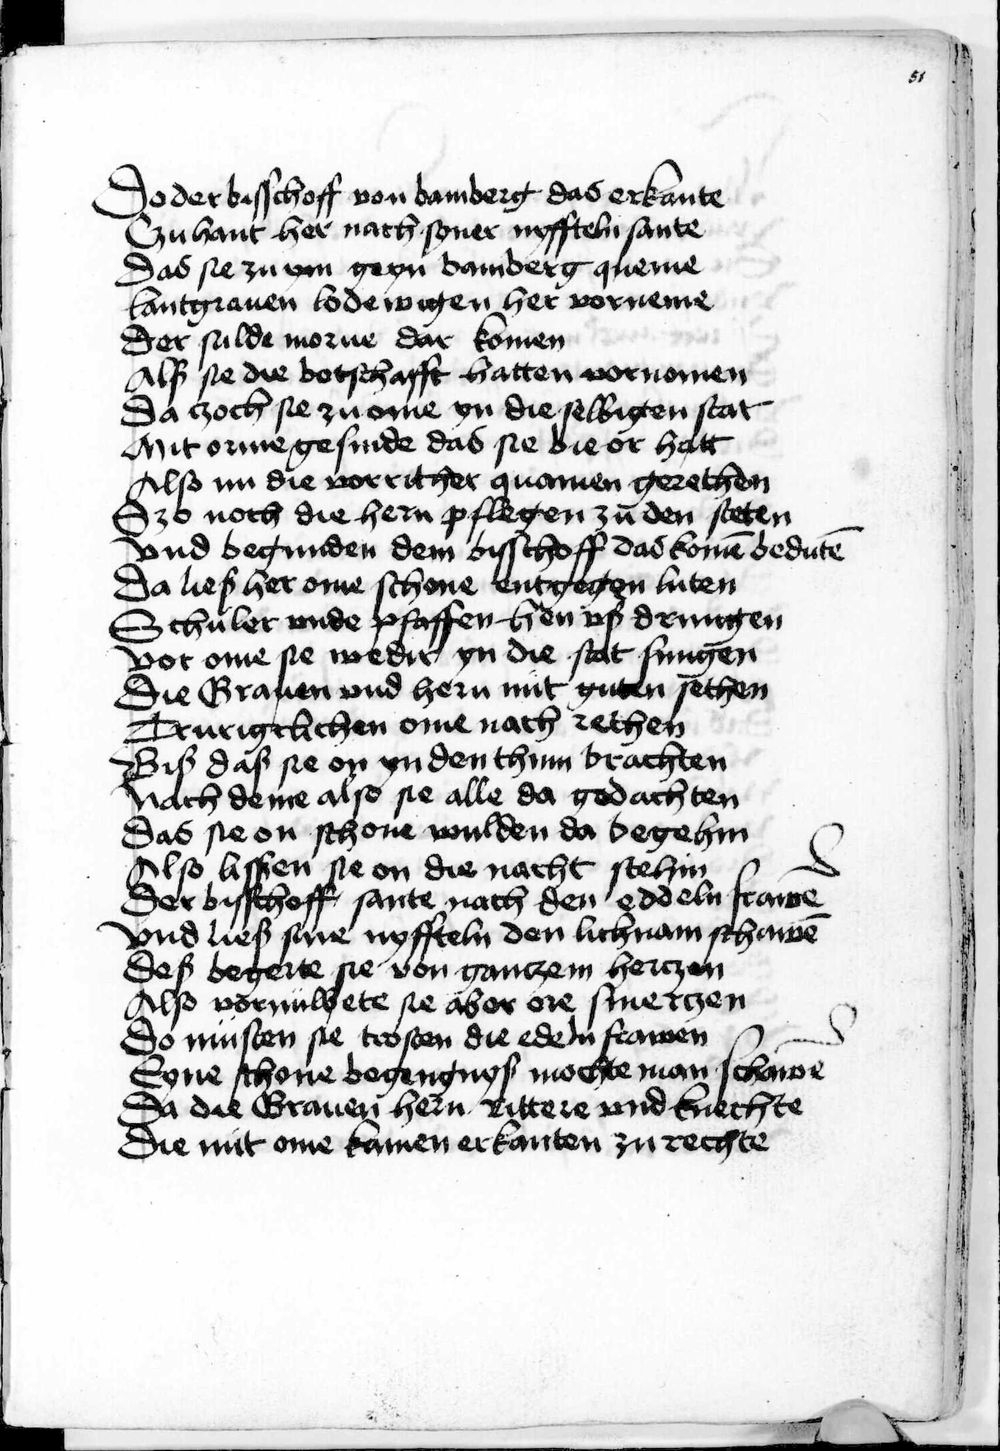 51
Do der bisschoff von bamberg das erkante
Czu hant her nach syner nyffteln sante
Das sie zu ym geyn bamberg queme
lantgrauen lodewigen her vorneme
Der sulde morne dar komen
Alß sie die botschafft hatten vornomen
Da czoch sie zu ome yn die selbigen stat
Mit orme gesinde das sie bie or hatt
Also nu die vorrither quamen gerethen
Szo noch die hern pflegen zu den steten
vnd begunden dem bisschoff das komē bedutē
Da ließ her ome schone entgegen luten
Schuler vnde pfaffen hen vß drungen
vor ome sie wedir yn die stat sungen
Die Grauen vnd hern mit guten sethen
Trurigclichen ome nach rethen
Biß daß sie on yn den thum brachten
Nach deme also sie alle da gedachten
Das sie on schone wulden da begehin
Also lissen sie on die nacht stehin
Der bisschoff sante nach den eddeln frawē
vnd ließ sine nyffteln den lichnam schawē
deß begerte sie von gantzem hertzen
Also vornuwete sie abor ore smertzen
Do musten sie trosten die edeln frawen
Eyne schone begengnyß mochte man schawē
Da die Grauen hern rittere vnd knechte
Die mit ome kamen erkanten zu rechte